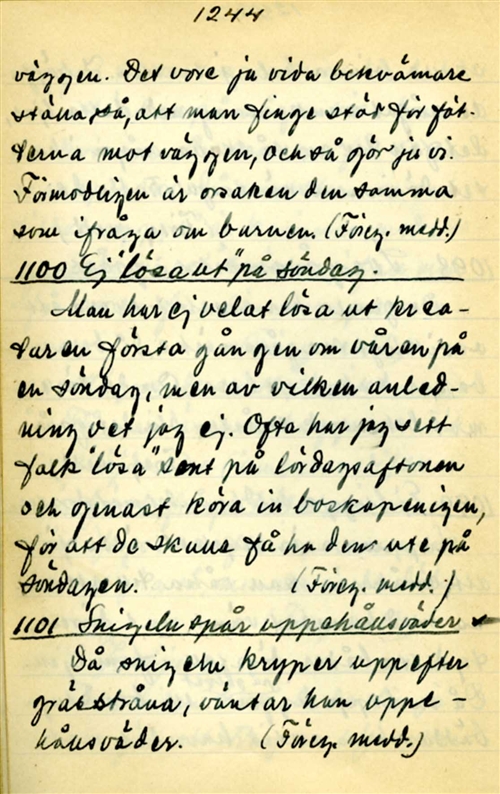 1244
väggen. Det vore ju vida bekvämare
ställa så, att man finge stöd för föt-
terna mot väggen, och så gör ju vi.
Förmodligen är orsaken den samma
som ifråga om barnen. (Föreg. medd.)
1100 Ej "lösa ut" på söndag.
Man har ej velat lösa ut krea-
turen första gången om våren på
en söndag, men av vilken anled-
ning vet jag ej. Ofta har jag sett
folk "lösa" sent på lördagsaftonen
och genast köra in boskapen igen,
för att de skulle få ha den ute på
söndagen. (Föreg. medd.)
1101 Snigeln spår uppehållsväder
Då snigeln kryper upp efter
grässtråna, väntar han uppe-
hållsväder. (Föreg. medd.)